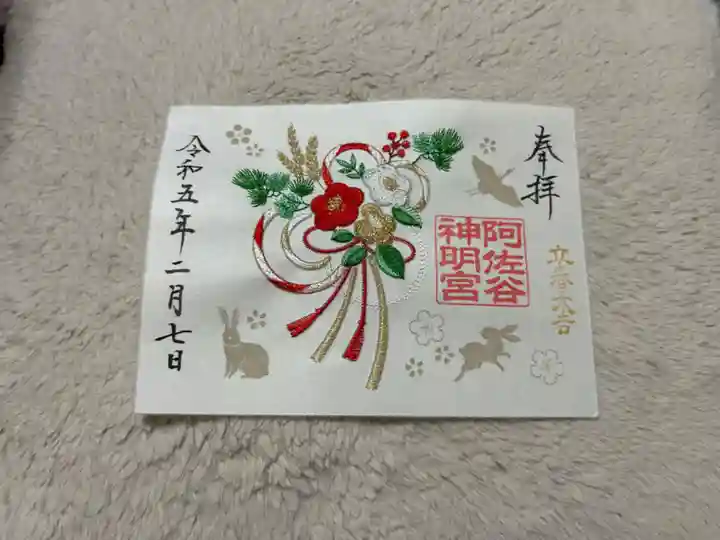 奉拝
立春大吉
阿佐谷
神明宮
令和五年二月七日